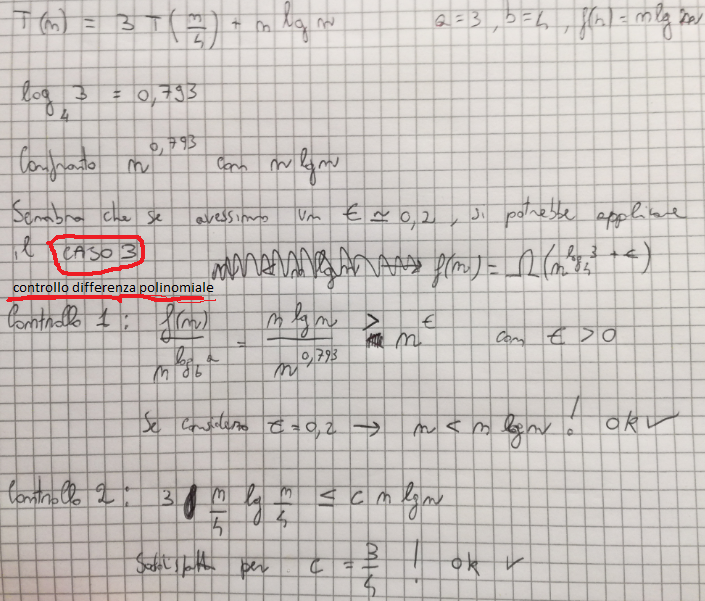 T(n) = 3 T(n/4) + n lg n    a=3, b=4, f(n)=n lg n
log_4 3 = 0,793
Confronto n^0,793 con n lg n
Sembra che se avessimo un ε ≃ 0,2, si potrebbe applicare
il CASO 3    f(n) = Ω(n^(log_4 3 + ε))
controllo differenza polinomiale
Controllo 1: f(n)/n^(log_b a) = n lg n/n^0,793 > n^ε con ε > 0
Se considero ε=0,2 → n < n lg n! ok ✓
Controllo 2: 3 n/4 lg n/4 ≤ c n lg n
Soddisfatta per c = 3/4 ! ok ✓